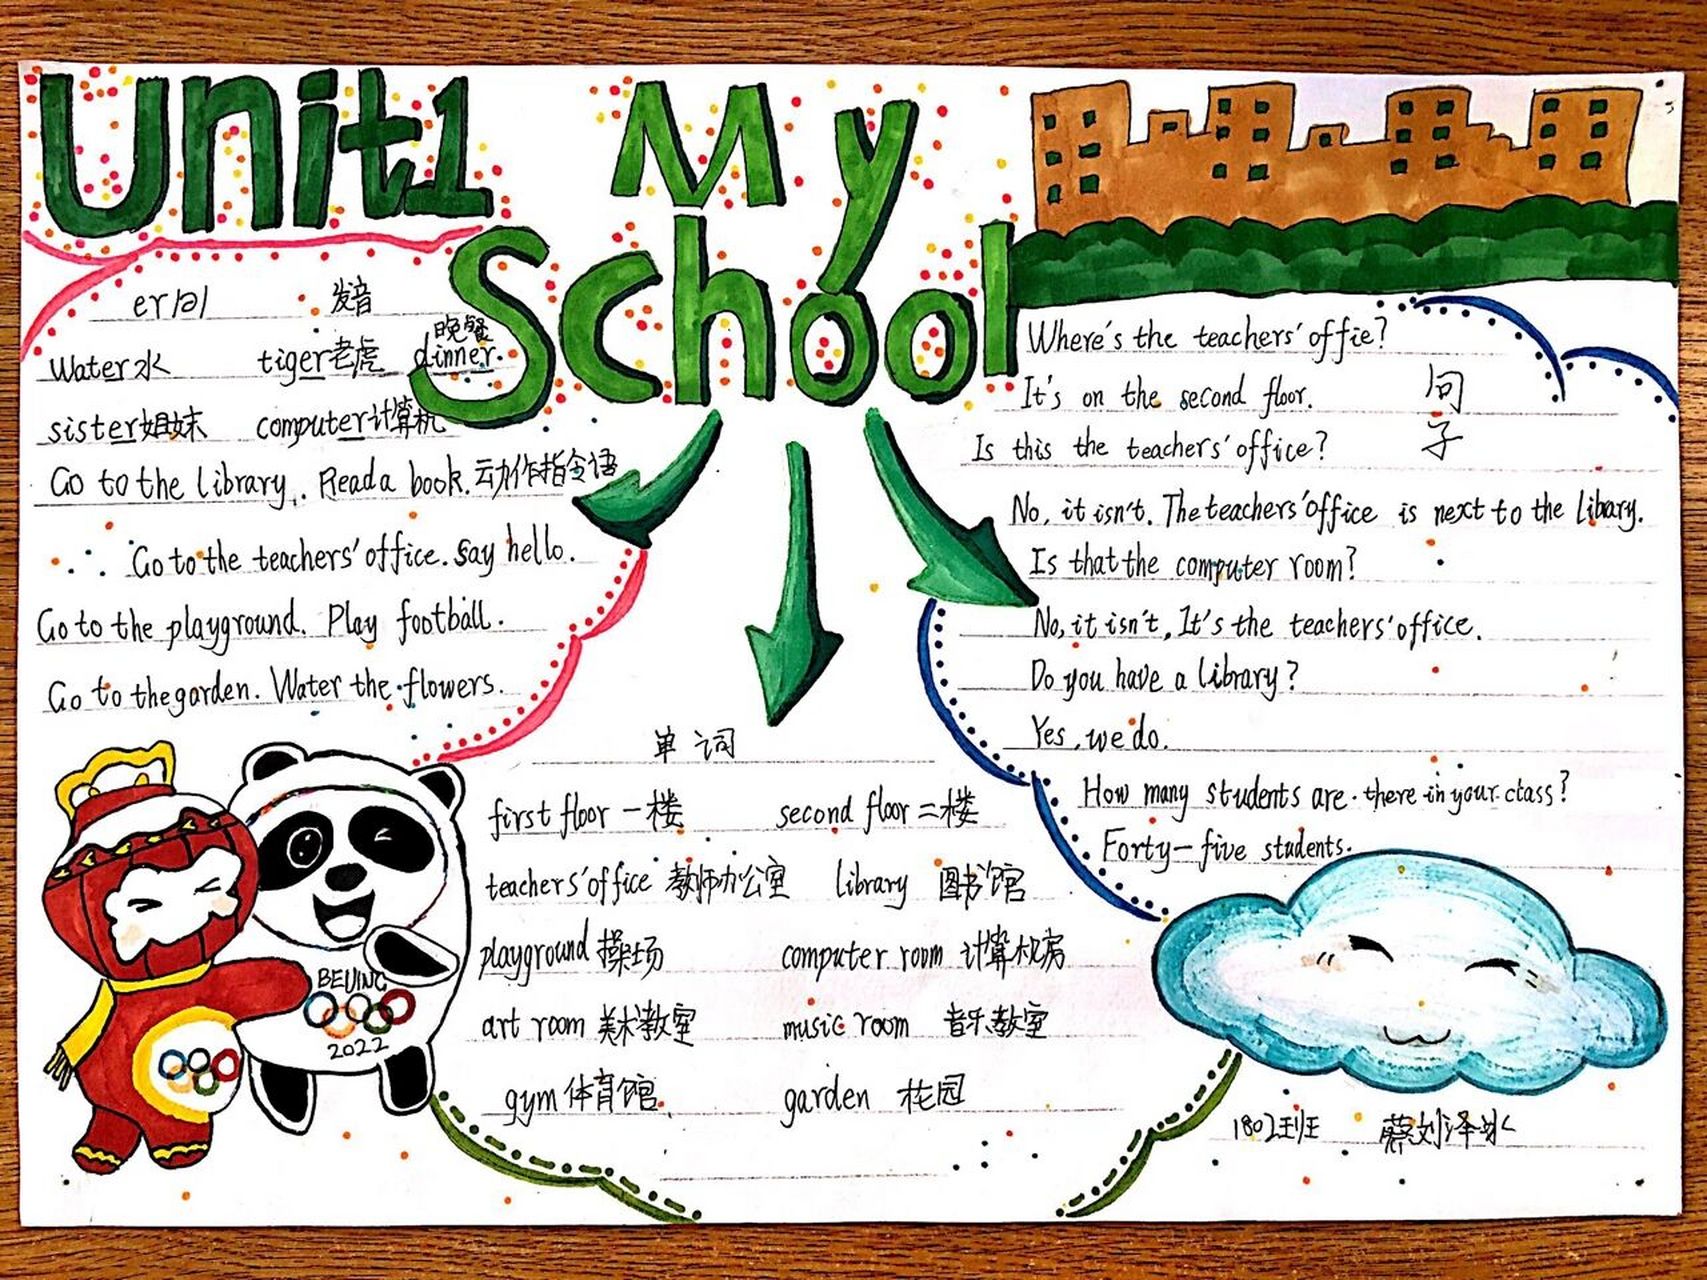 Unit1 My
School
er /ə/ 发音
Water水 tiger老虎 dinner. 晚餐
sister姐妹 computer计算机
Go to the library. Read a book. 动作指令语
Go to the teachers' office. Say hello.
Go to the playground. Play football.
Go to the garden. Water the flowers.
单词
first floor 一楼 second floor 二楼
teachers' office 教师办公室 library 图书馆
playground 操场 computer room 计算机房
art room 美术教室 music room 音乐教室
gym 体育馆 garden 花园
句子
Where's the teachers' offie?
It's on the second floor.
Is this the teachers' office?
No, it isn't. The teachers' office is next to the libary.
Is that the computer room?
No, it isn't, It's the teachers' office.
Do you have a library?
Yes, we do.
How many students are there in your class?
Forty-five students.
BEIJING
2022
1802班 蔡刘泽